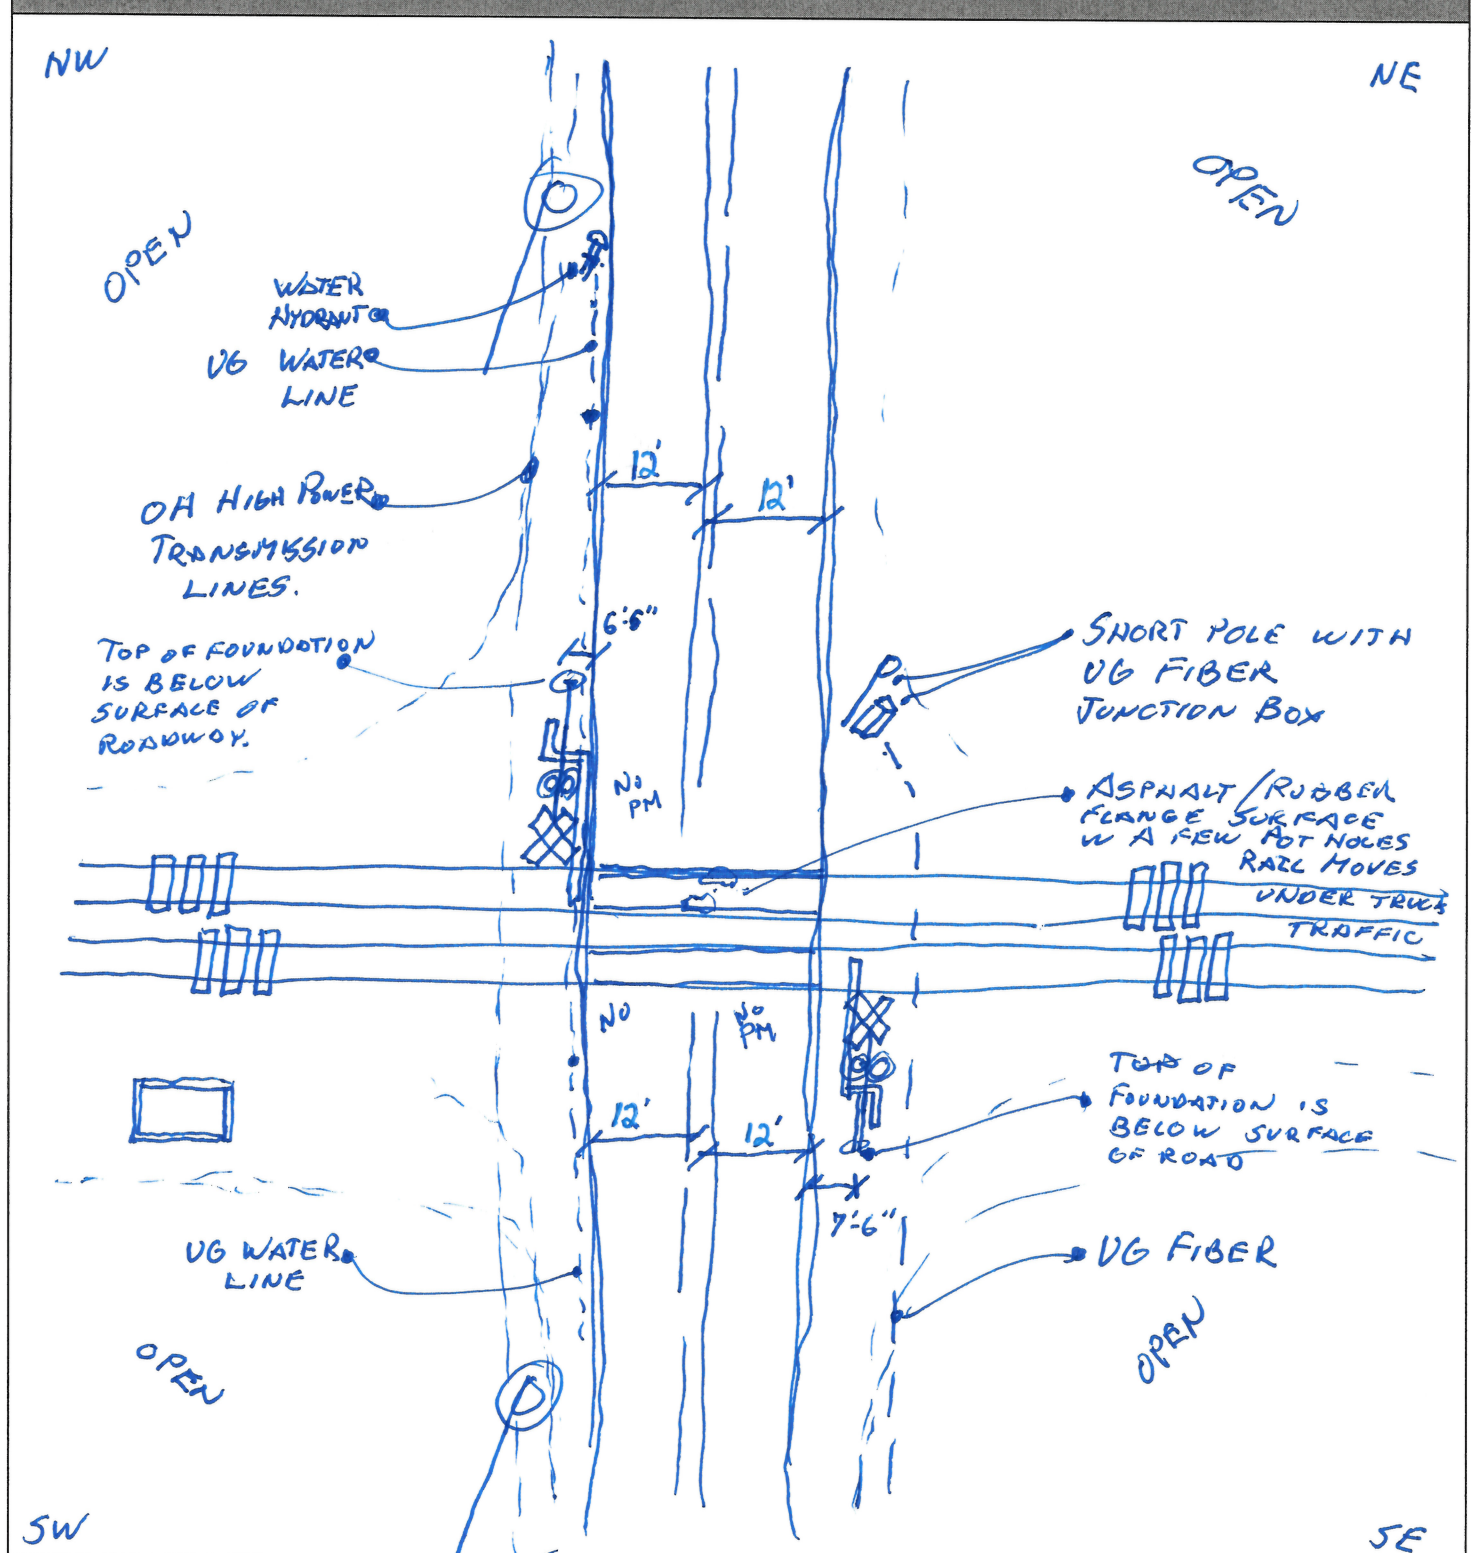 NW
NE
OPEN
OPEN
WATER
HYDRANT
UG WATER
LINE
12'
12'
OH HIGH POWER
TRANSMISSION
LINES.
6'-6"
TOP OF FOUNDATION
IS BELOW
SURFACE OF
ROADWAY.
SHORT POLE WITH
UG FIBER
JUNCTION BOX
NO
PM
ASPHALT/RUBBER
FLANGE SURFACE
W A FEW POT HOLES
RAIL MOVES
UNDER TRUCK
TRAFFIC
NO
NO
PM
12'
12'
TOP OF
FOUNDATION IS
BELOW SURFACE
OF ROAD
7'-6"
UG WATER
LINE
UG FIBER
OPEN
OPEN
SW
SE